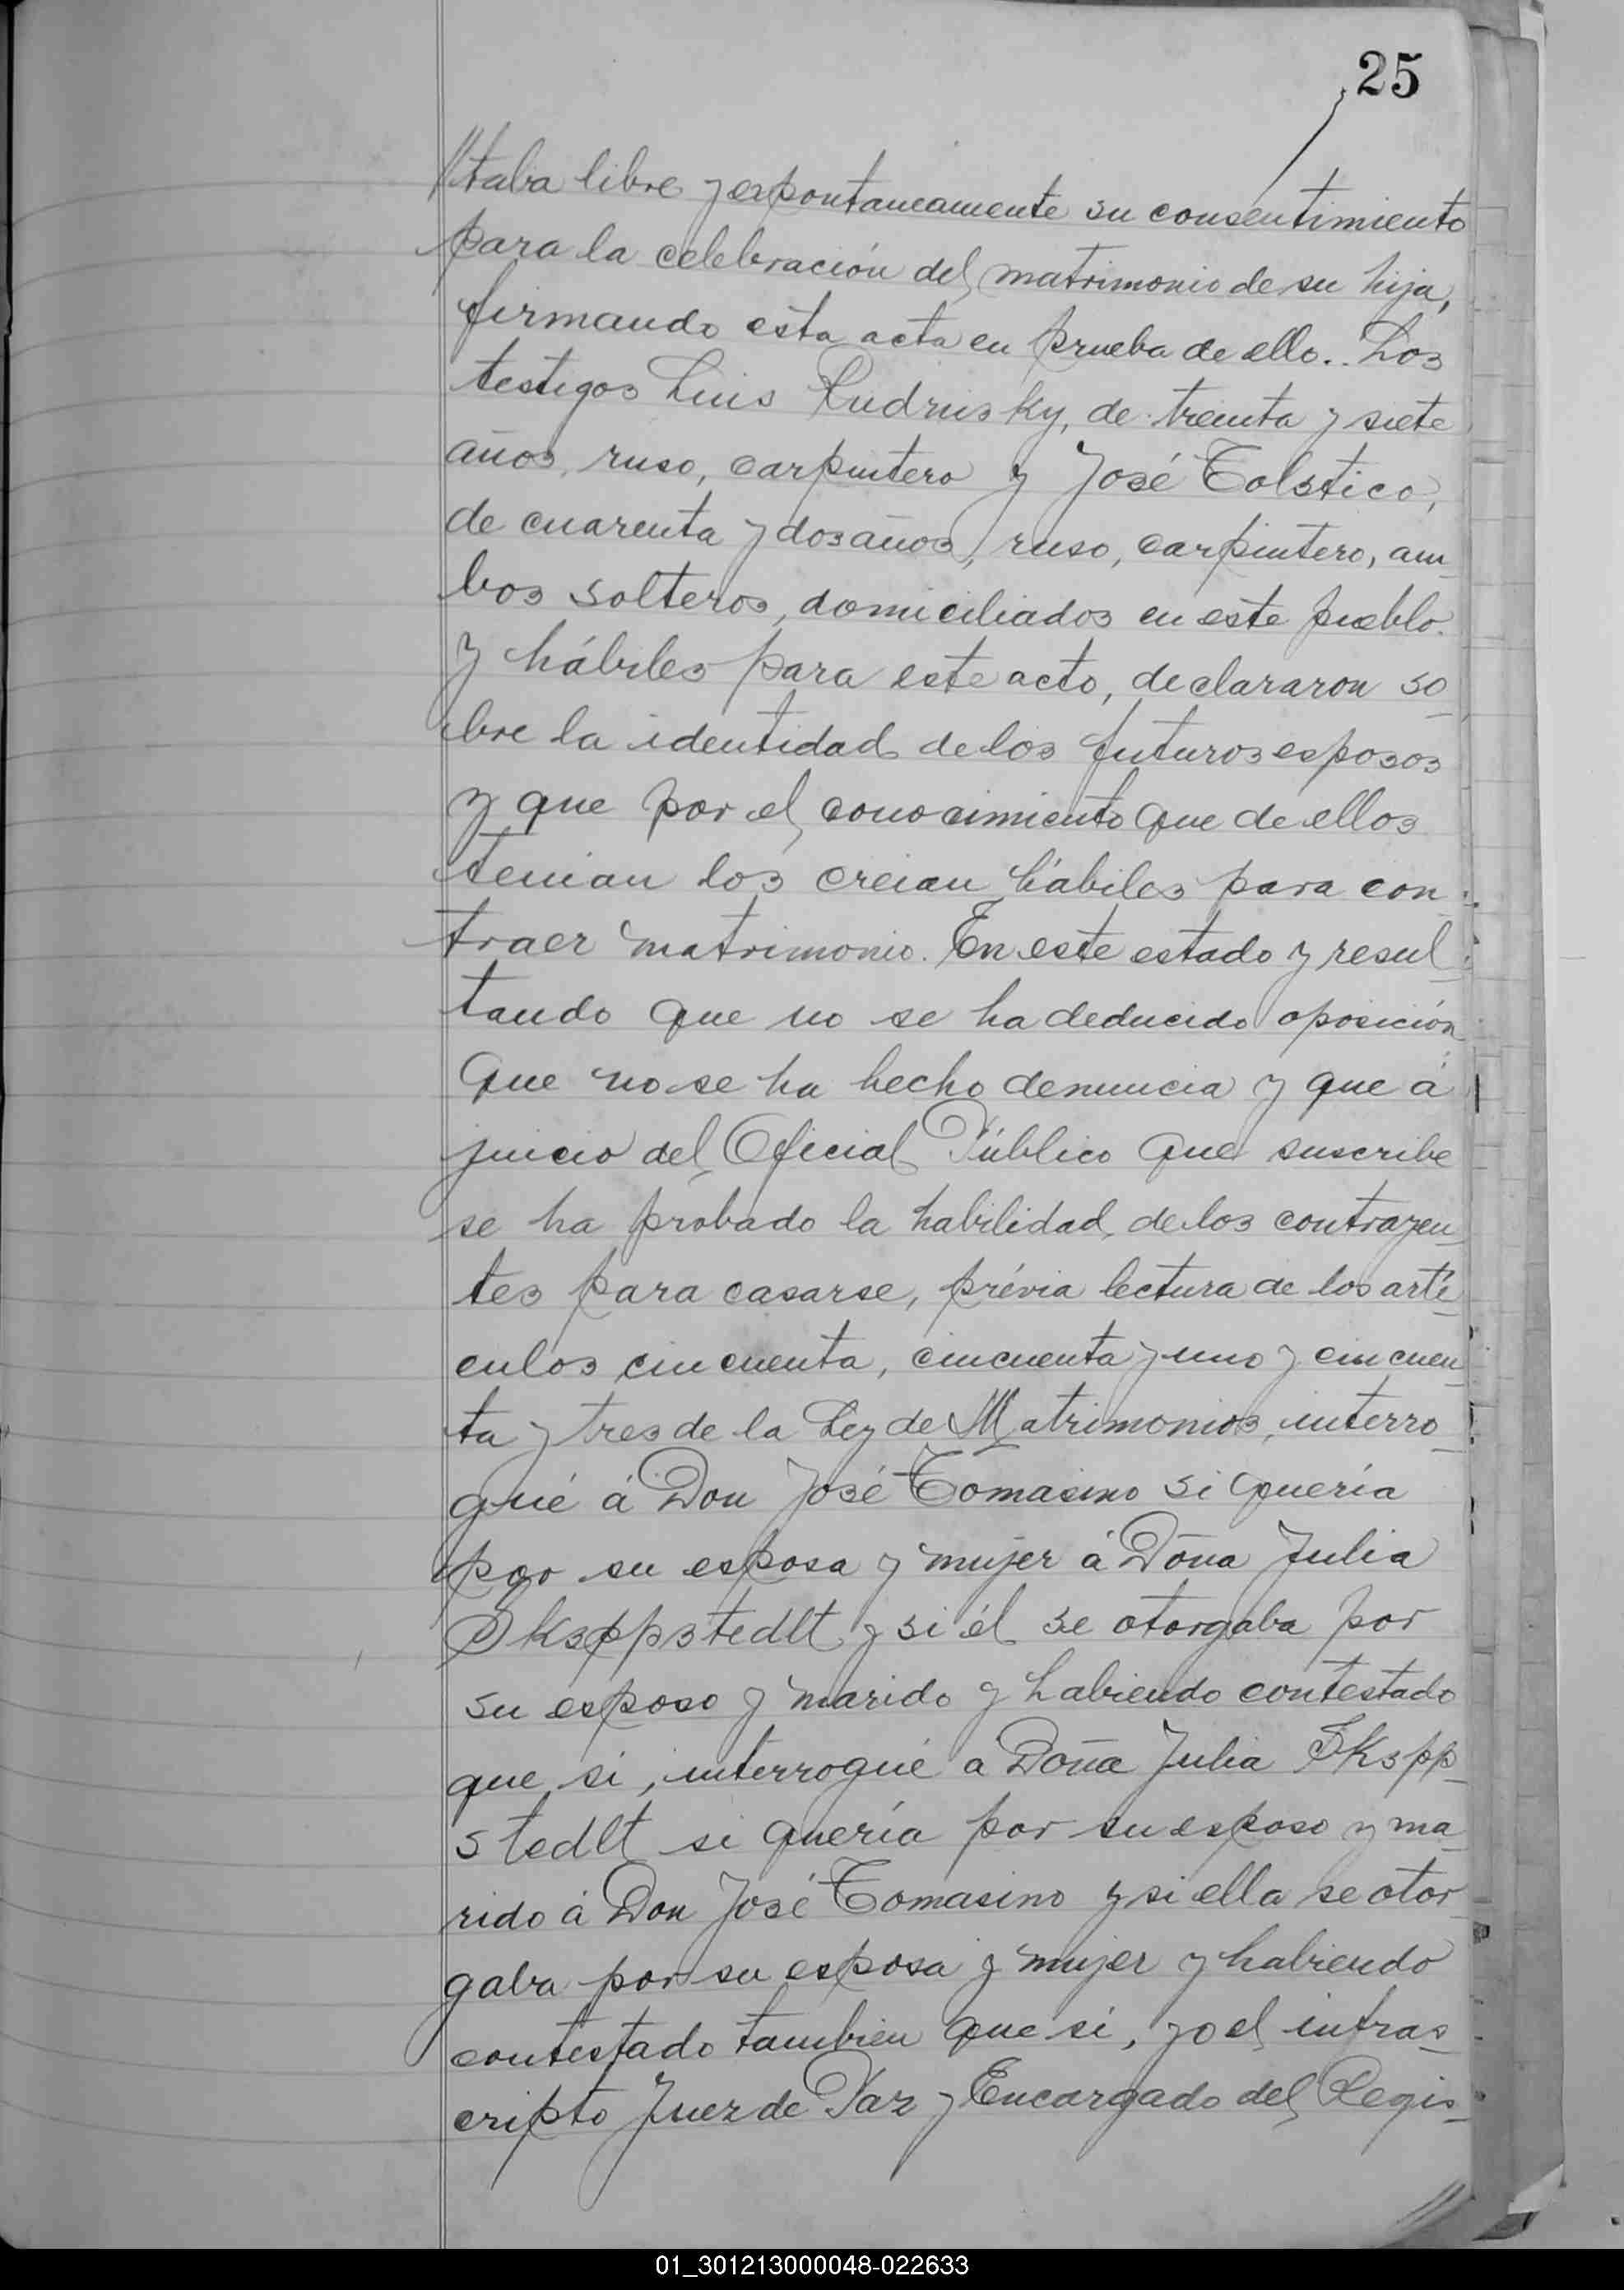 25
//taba libre y expontaneamente su consentimiento
para la celebración del matrimonio de su hija,
firmando esta acta en prueba de ello.. Los
testigos Luis Rudnisky, de treinta y siete
años, ruso, carpintero y José Tolstico,
de cuarenta y dos años, ruso, carpintero, am
bos solteros, domiciliados en este pueblo
y hábiles para este acto, declararon so
bre la identidad de los futuros esposos
y que por el conocimiento que de ellos
tenian los creian hábiles para con
traer matrimonio. En este estado y resul
tando que no se ha deducido oposición
que no se ha hecho denuncia y que á
juicio del Oficial Público que suscribe
se ha probado la habilidad de los contrayen
tes para casarse, prévia lectura de los artí
culos cincuenta, cincuenta y uno y cincuen
ta y tres de la Ley de Matrimonios, interro
gué á Don José Tomasino si quería
por su esposa y mujer á Doña Julia
Sksppstedlt y si él se otorgaba por
su esposo y marido y habiendo contestado
que si, interrogué a Doña Julia Skspp
stedlt si quería por su esposo y ma
rido á Don José Tomasino y si ella se otor
gaba por su esposa y mujer y habiendo
contestado tambien que si, yo el infras
cripto Juez de Paz y Encargado del Regis
//
01_301213000048-022633